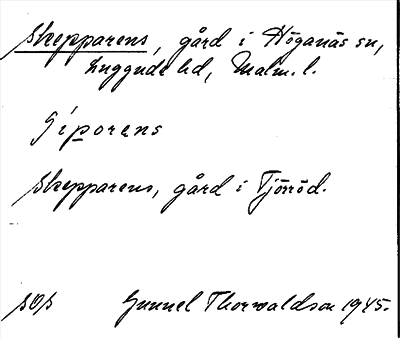 Skepparens, gård i Höganäs sn,
Luggude hd, Malm. l.
Skepparens, gård i Tjörröd.
Gunnel Thorvaldson 1945.